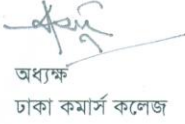 অধ্যক্ষ
ঢাকা কমার্স কলেজ